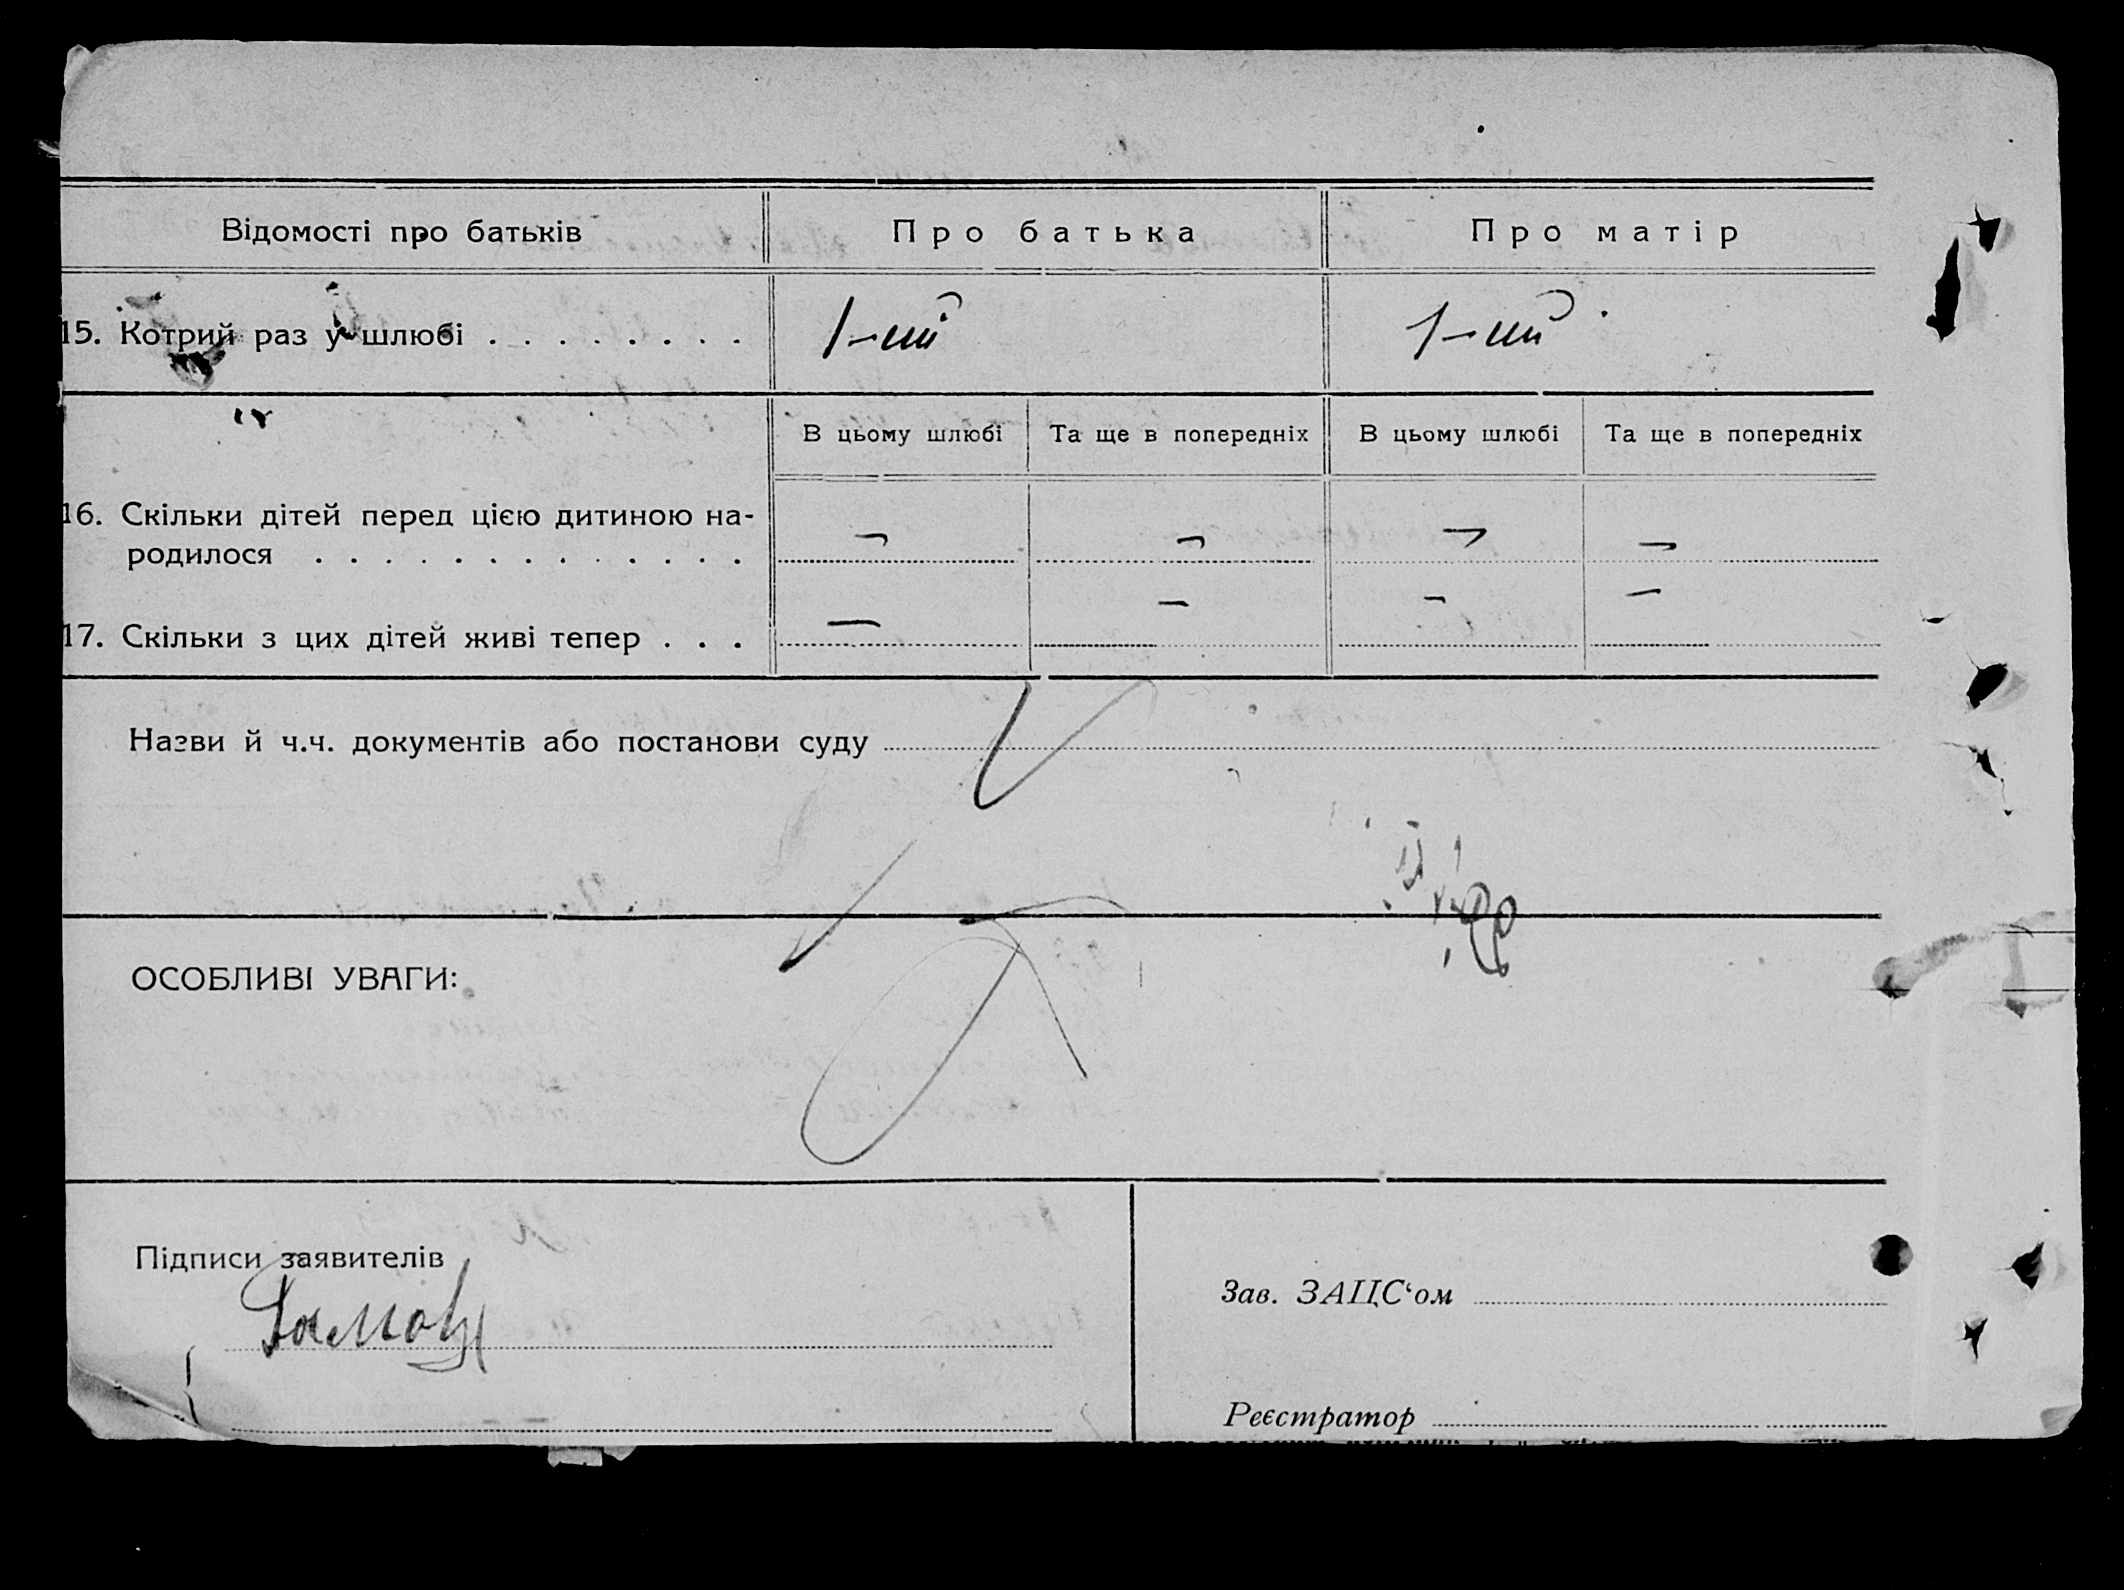 Відомості про батьків
Про батька
Про матір
15. Котрий раз у шлюбі . . . . . . . .
1-ий
1-ий
В цьому шлюбі
Та ще в попередніх
В цьому шлюбі
Та ще в попередніх
16. Скільки дітей перед цією дитиною на-
родилося . . . . . . . . . . . . .
— — — —
17. Скільки з цих дітей живі тепер . . .
— — — —
Назви й ч.ч. документів або постанови суду
ОСОБЛИВІ УВАГИ:
Підписи заявителів
Зав. ЗАЦС‘ом
Реєстратор